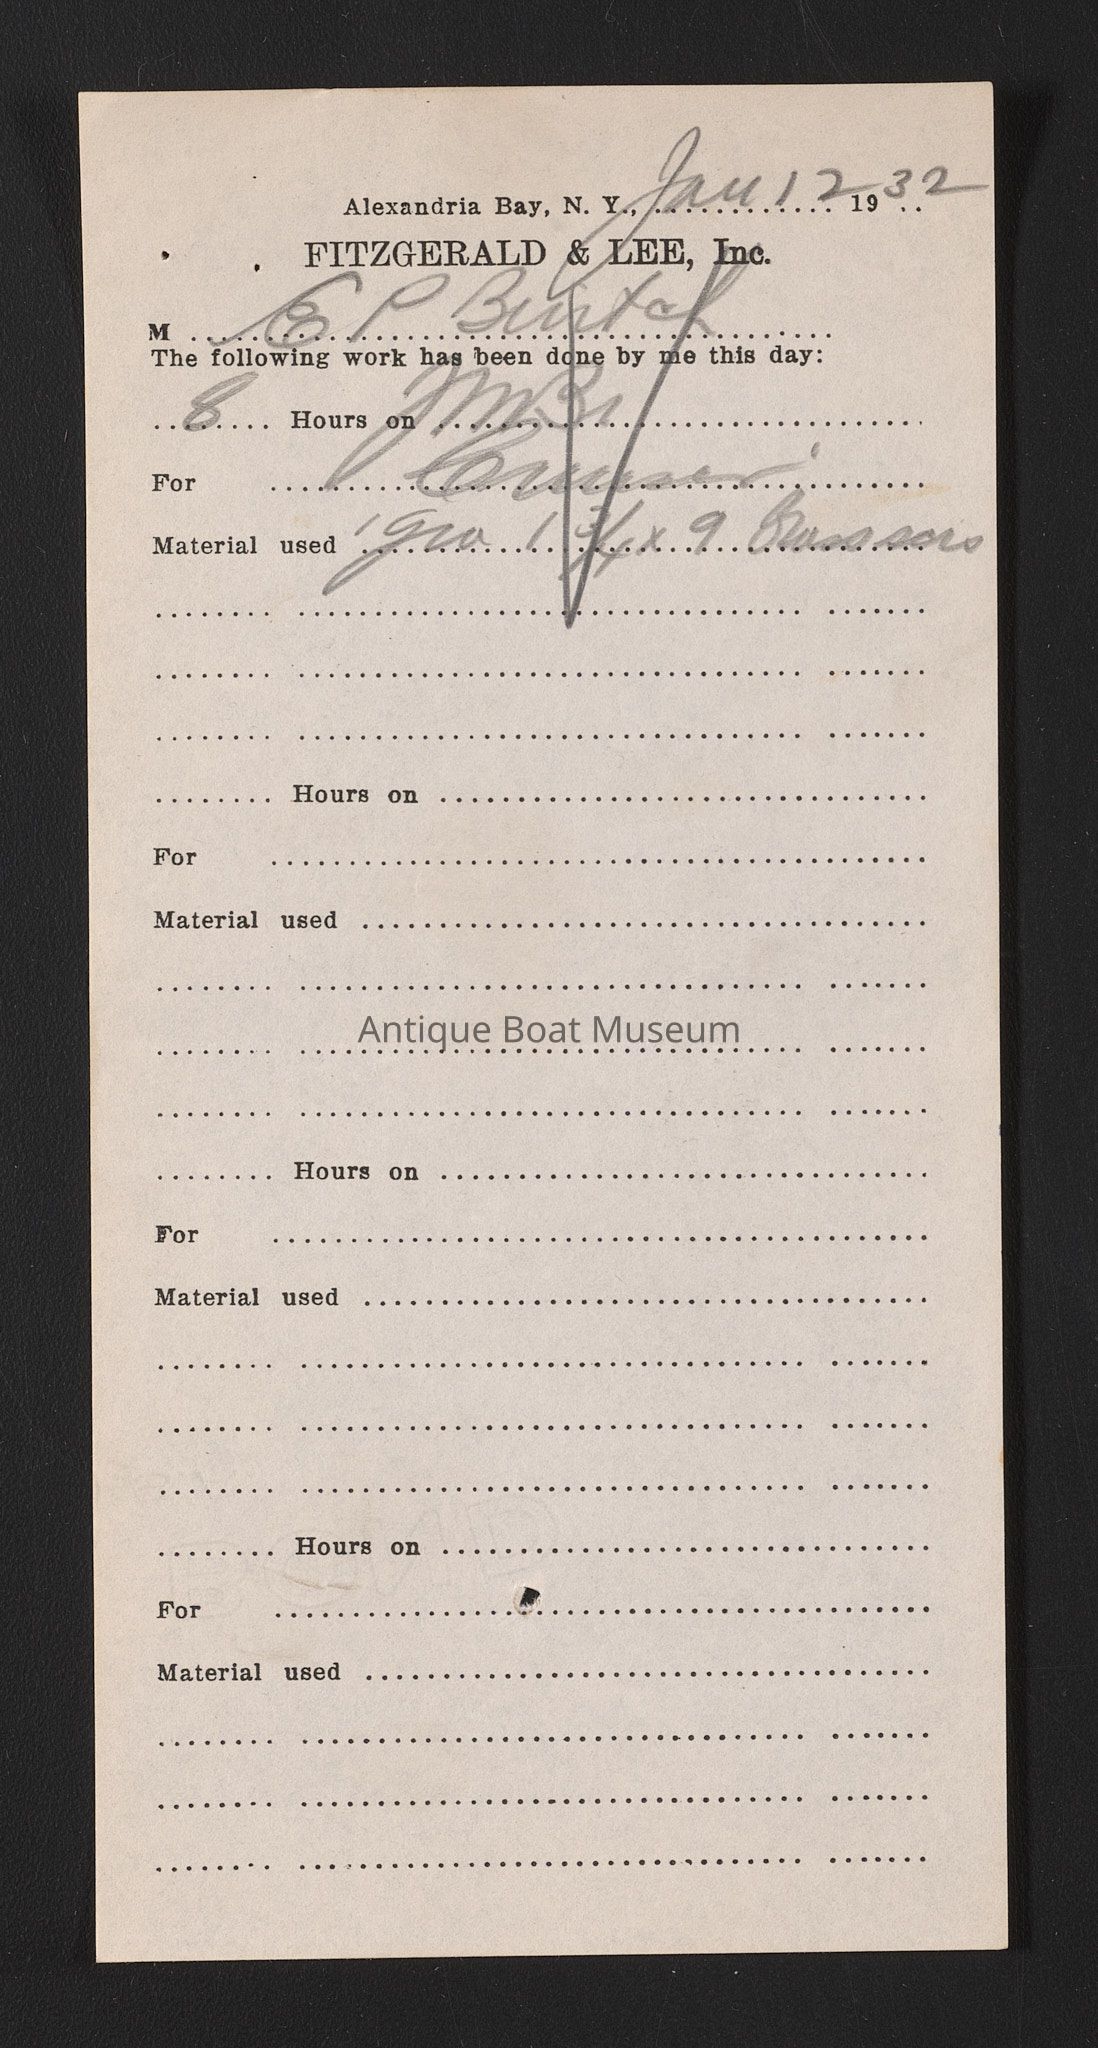 Alexandria Bay, N. Y., Jan 12 1932
FITZGERALD & LEE, Inc.
M E P Burtch
The following work has been done by me this day:
8 Hours on
For Cruiser
Material used 1 gro 1 3/4 x 9
Hours on
For
Material used
Antique Boat Museum
Hours on
For
Material used
Hours on
For
Material used